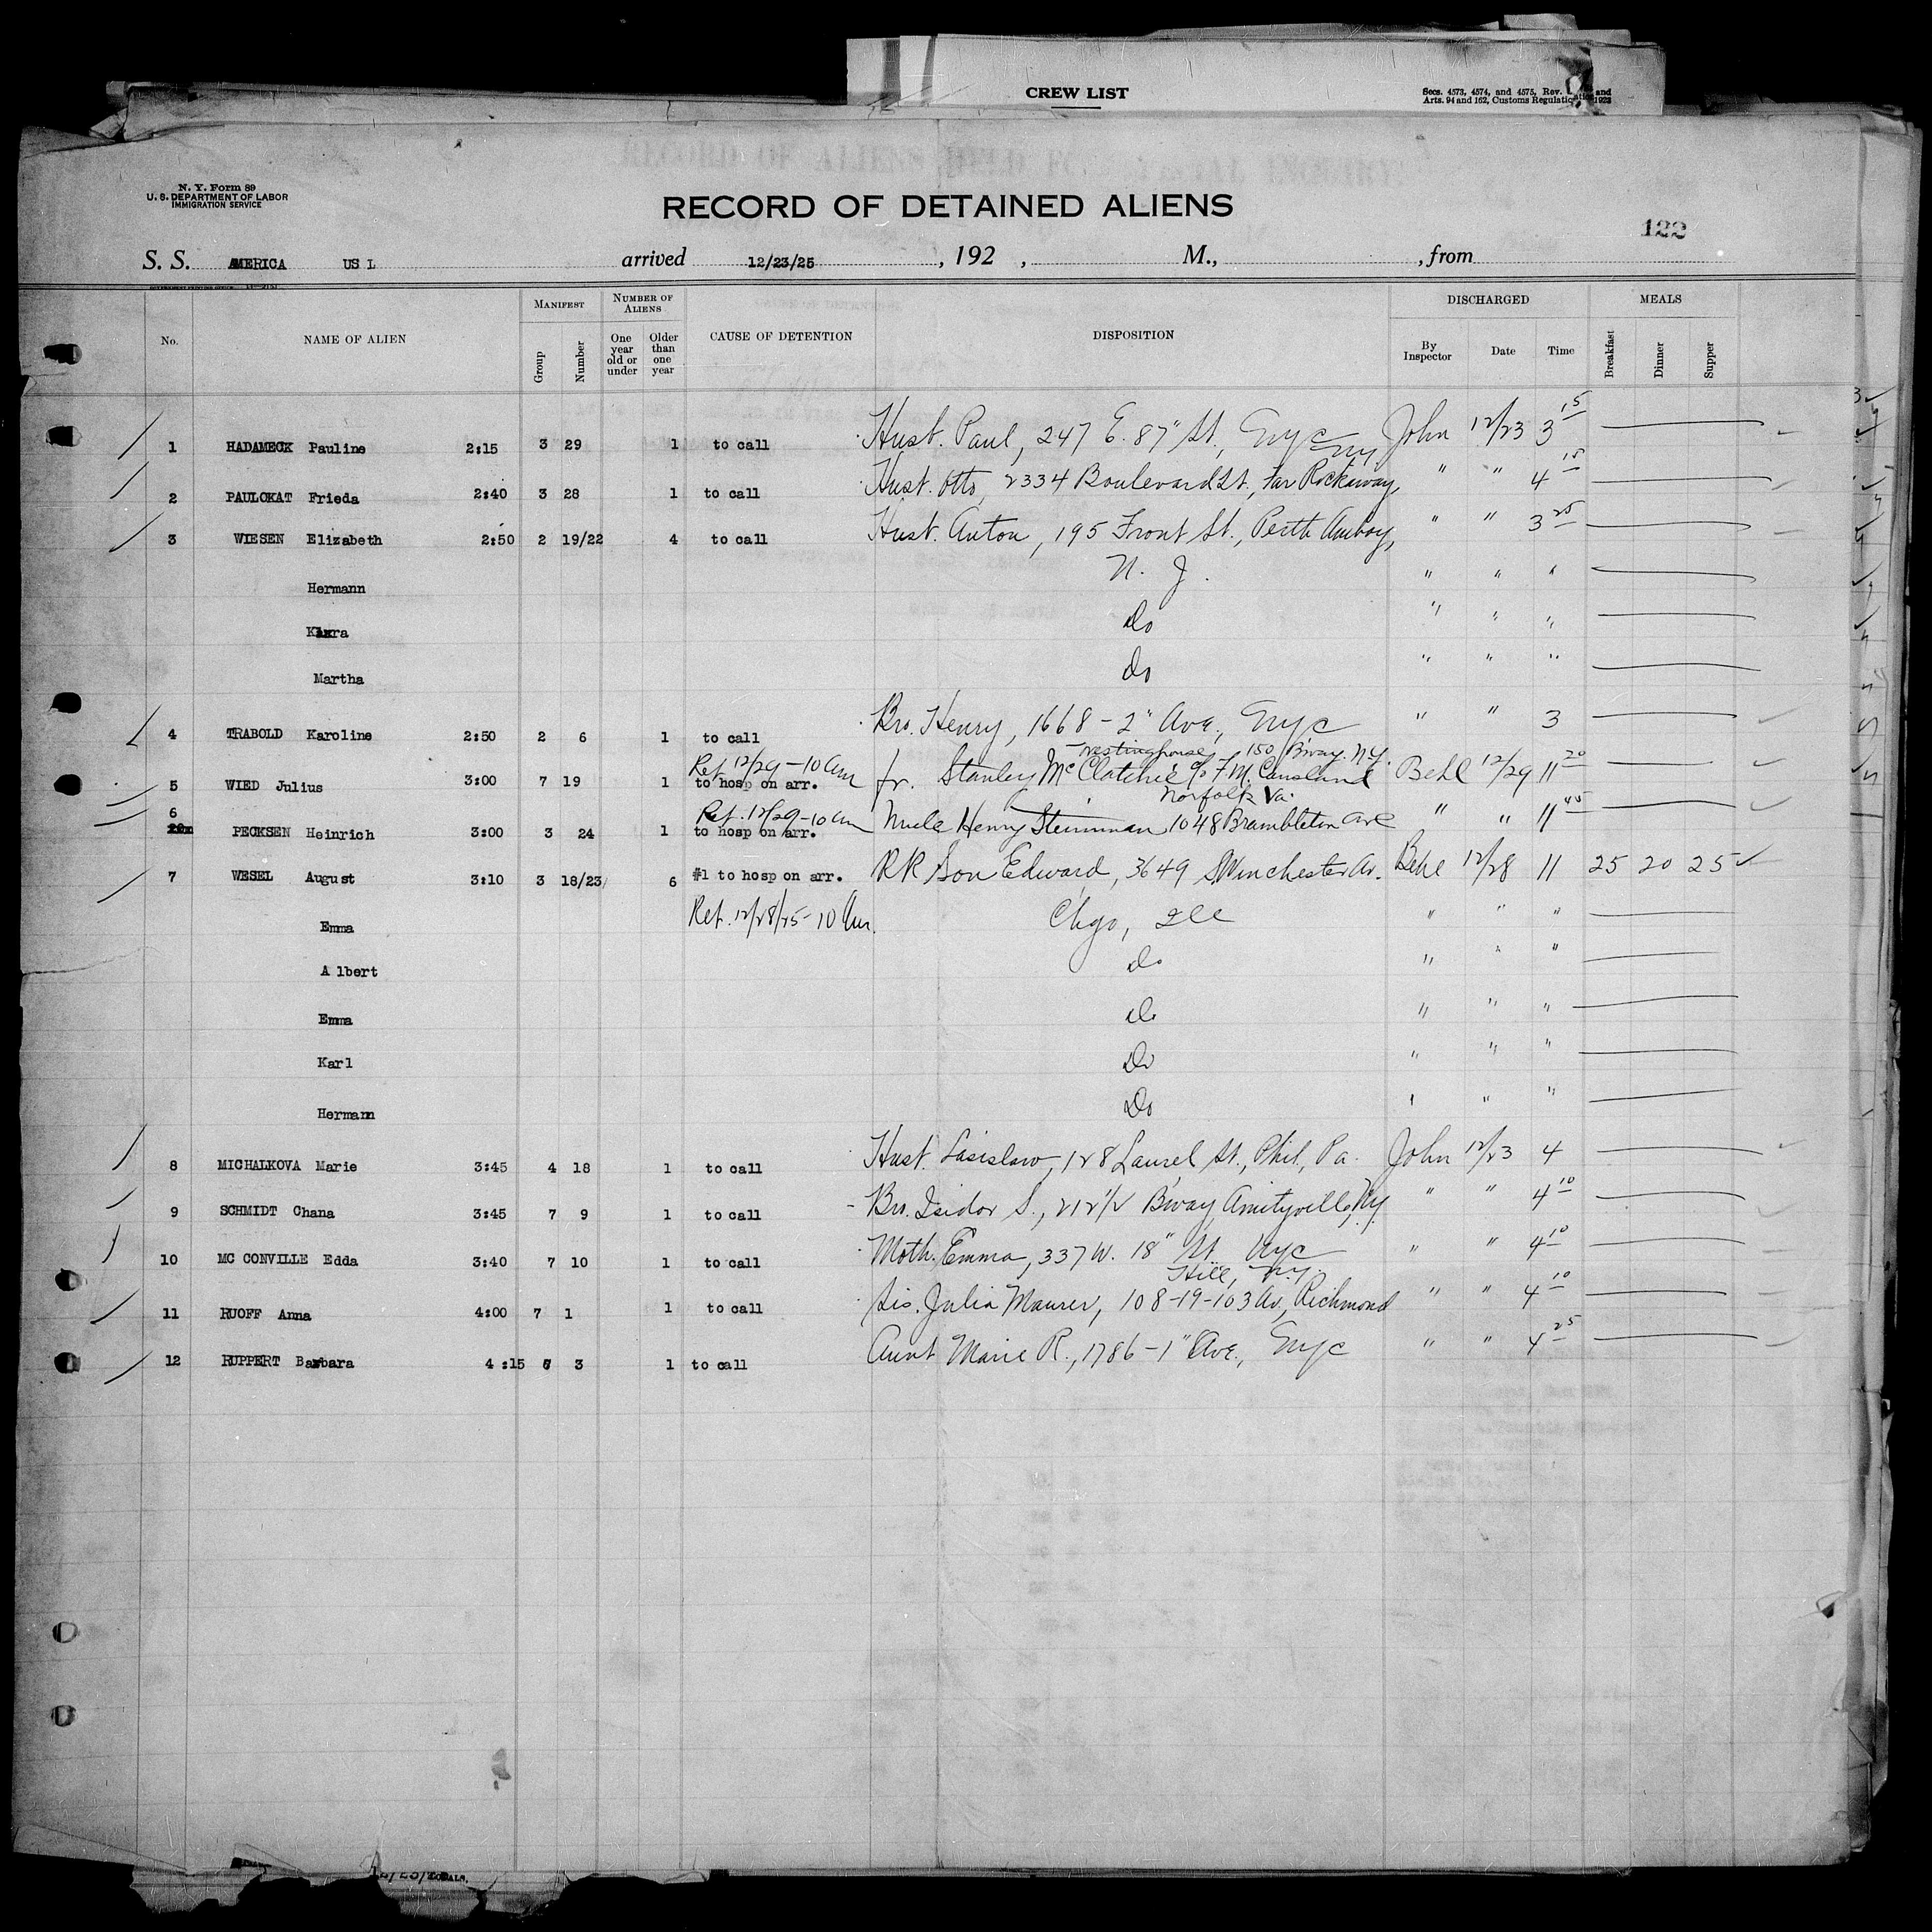 CREW LIST
Secs. 4573, 4574, and 4575, Rev. and
Arts. 94 and 162, Customs Regulations 1923
N. Y. Form 89
U. S. DEPARTMENT OF LABOR
IMMIGRATION SERVICE
RECORD OF DETAINED ALIENS
122
S. S. AMERICA US L arrived 12/23/25 , 192 , M., , from
No. NAME OF ALIEN MANIFEST Group Number NUMBER OF ALIENS One year old or under Older than one year CAUSE OF DETENTION DISPOSITION DISCHARGED By Inspector Date Time MEALS Breakfast Dinner Supper
1 HADAMECK Pauline 2:15 3 29 1 to call Husb. Paul, 247 E. 87" St, NYC John 12/23 3 15
2 PAULOKAT Frieda 2:40 3 28 1 to call Husb. Otto, 2334 Boulevard St., Far Rockaway, NY " " 4 15
3 WIESEN Elizabeth 2:50 2 19/22 4 to call Husb. Anton, 195 Front St., Perth Amboy, " " 3 25
Hermann N. J. " " "
Klara Do " " "
Martha Do " " "
4 TRABOLD Karoline 2:50 2 6 1 to call Bro. Henry, 1668 - 2" Ave, NYC " " 3
Ret 12/29 - 10 am Westinghouse, 150 B'way. N.Y.
5 WIED Julius 3:00 7 19 1 to hosp on arr. fr. Stanley McClatchie c/o F. M. Behl 12/29 11 20
Ret. 12/29 - 10 am Norfolk Va.
6 PECKSEN Heinrich 3:00 3 24 1 to hosp on arr. Uncle Henry Steinman 1048 Brambleton Ave " " 11 45
7 WESEL August 3:10 3 18/23 6 #1 to hosp on arr. RR Son Edward, 3649 S Winchester Av. Behl 12/28 11 25 20 25
Emma Ret. 12/28/25 - 10 Am. Chgo, Ill " " "
Albert Do " " "
Emma Do " " "
Karl Do " " "
Hermann Do " " "
8 MICHALKOVA Marie 3:45 4 18 1 to call Husb. Lasislaw, 128 Laurel St., Phil., Pa. John 12/23 4
9 SCHMIDT Chana 3:45 7 9 1 to call Bro. Isidor S., 212 1/2 Bway, Amityville, NY " " 4 10
10 MC CONVILLE Edda 3:40 7 10 1 to call Moth. Emma, 337 W. 18" St NYC " " 4 10
Hill, N.Y.
11 RUOFF Anna 4:00 7 1 1 to call Sis. Julia Maurer, 108-19-103 Av, Richmond " " 4 10
12 RUPPERT Barbara 4:15 3 1 to call Aunt Marie R., 1786 - 1" Ave., NYC " " 4 25